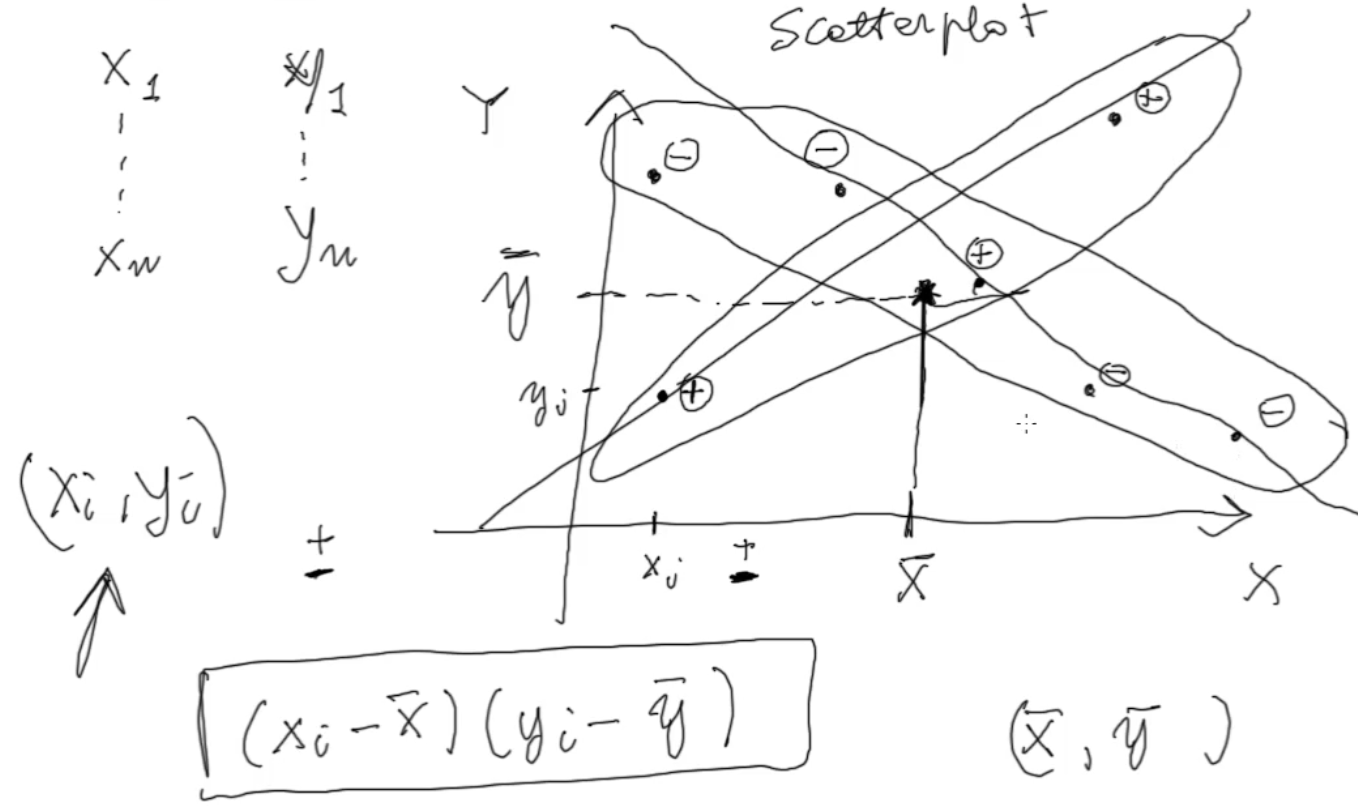 Scatterplot
x₁ y₁
xₙ yₙ
Y
⊖ ⊖ ⊕
ȳ ⊕
yᵢ ⊕ ⊖ ⊖
(xᵢ, yᵢ)
±
xᵢ ± x̄ X
(xᵢ - x̄)(yᵢ - ȳ)
(x̄, ȳ)